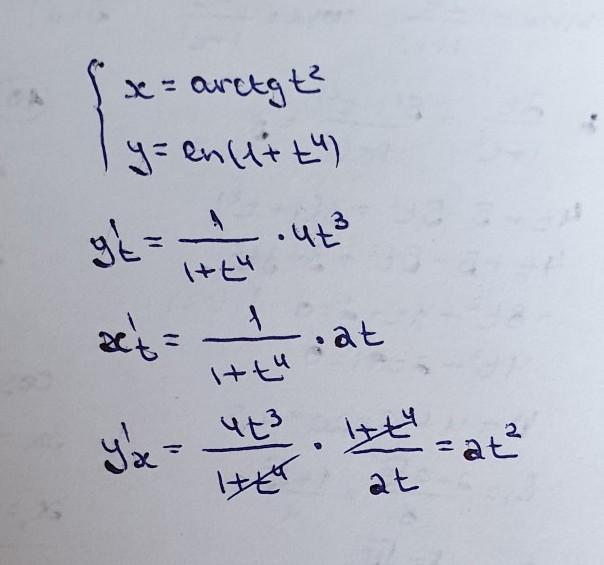 { x = arctg t²
y = ln(1 + t⁴)
y't = 1/(1+t⁴) · 4t³
x't = 1/(1+t⁴) · 2t
y'x = 4t³/(1+t⁴) · (1+t⁴)/2t = 2t²